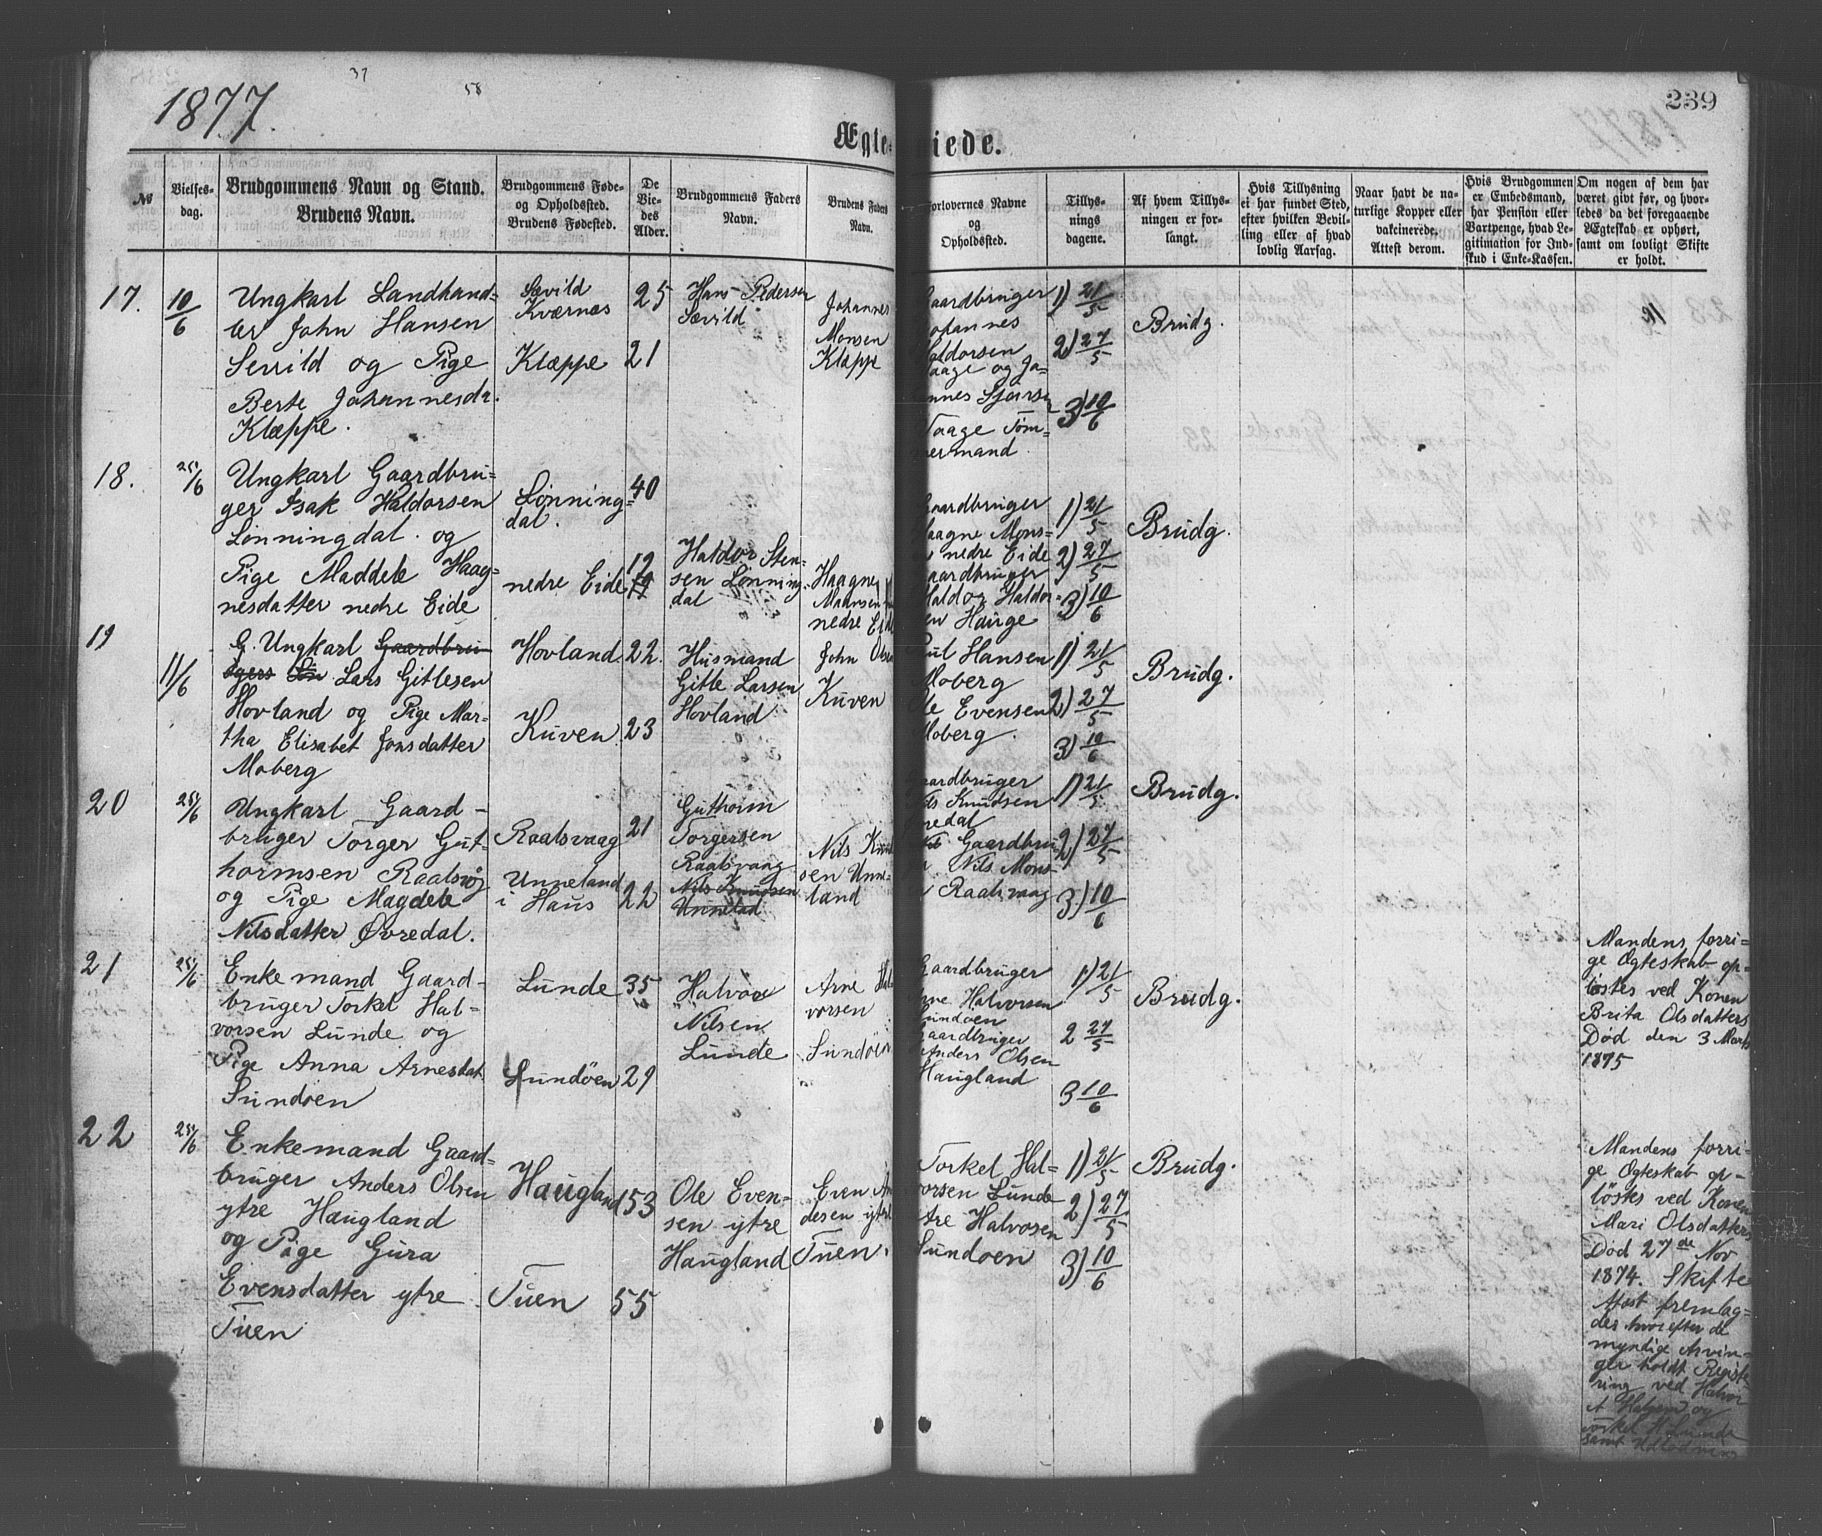 1877.
37
58
239
Ægte-
viede.
№
Vielses-
dag.
Brudgommens Navn og Stand.
Brudens Navn.
Brudgommens Føde-
og Opholdssted.
Brudens Fødested.
De
Vie-
des
Alder.
Brudgommens Faders
Navn.
Brudens Faders
Navn.
Forlovernes Navne
og
Opholdssted.
Tillys-
nings
dagene.
Af hvem Tillys-
ningen er for-
langt.
Hvis Tillysning
ei har fundet Sted,
efter hvilken Bevil-
ling eller af hvad
lovlig Aarsag.
Naar havt de na-
turlige Kopper eller
vakcinerede.
Attest derom.
Hvis Brudgommen
er Embedsmand,
har Pension eller
Vartpenge, hvad Le-
gitimation for Ind-
skud i Enke-Kassen.
Om nogen af dem har
været givt før, og hvor-
ledes da det foregaaende
Ægteskab er ophørt,
samt om lovligt Skifte
er holdt.
17.
10/6
Ungkarl Landhand-
ler John Hansen
Sevild og Pige
Berte Johannesdr.
Klæppe.
Sævild
Kværnæs
Klæppe
25
21
Hans Pedersen
Sævild
Johannes
Monsen
Klæppe
Gaardbruger
Johannes
Haldorsen
Vaage og Jo-
annes Sjurs
Vaage Tøm-
mermand
1) 21/5
2) 27/5
3) 10/6
Brudg.
18.
25/6
Ungkarl Gaardbru-
ger Isak Haldorsen
Lønningdal. og
Pige Maddele Haag-
nesdatter nedre Eide
Lønning-
dal.
nedre Eide
40
19
Haldor Sten-
sen Lønning-
dal
Haagne
Monsen
nedre Eide
Gaardbruger
Haagne Mons-
nedre Eide
Gaardbruger
Haldor Haldor-
sen Hauge
1) 21/5
2) 27/5
3) 10/6
Brudg.
19
11/6
G. Ungkarl Gaardbru-
gers Søn Lars Gitlesen
Hovland og Pige Mar-
tha Elisabet Jonsdatter
Moberg
Hovland
Kuven
22.
23
Husmand
Gitle Larsen
Hovland
John Olsen
Kuven
Hansen
Moberg
Ole Evensen
Moberg.
1) 21/5
2) 27/5
3) 10/6
Brudg.
20
25/6
Ungkarl Gaard-
bruger Torger Gut-
hormsen Raalsvøg
og Pige Magdele
Nilsdatter Øvredal.
Raalsvaag
Unneland
i Haus
21
22
Guthorm
Torgersen
Raalsvaag
Nils Knudsen
Unnelad
Nils Knud
sen Unne-
land
Gaardbruger
Nils Knudsen
Øvredal
Gaardbru
Nils Mons-
Raalsvaag
1) 21/5
2) 27/5
3) 10/6
Brudg.
21
25/6
Enkemand Gaard-
bruger Torkel Hal-
vorsen Lunde og
Pige Anna Arnesdat
Sundöen
Lunde
Sundöen
35
29
Halvor
Nilsen
Lunde
Arne Hal
vorsen
Sundöen
Gaardbruger
Arne Halvorsen
Sundöen
Gaardbruger
Anders Olsen
Haugland
1) 21/5
2 27/5
3 10/6
Brudg.
Mandens forri-
ge Ogteskab op-
löstes ved Konen
Brita Olsdatters
Död den 3 Marts
1875
22
25/6
Enkemand Gaard-
bruger Anders Olsen
ytre Haugland
og Pige Gura
Evensdatter ytre
Tuen
Haugland
Tuen
53
55
Ole Even-
sen ytre
Haugland
Even An
desen ytre
Tuen.
Torkel Hal-
vorsen Lunde
Halvorsen
Sundöen
1) 21/5
2) 27/5
3) 10/6
Brudg.
Mandens forri-
ge Ogteskab op-
löstes ved Konen
Mari Olsdatters
Död 27de Nov
1874. Skifte
Attest fremlag-
des hvorefter de
myndige Arvin-
ger holdt Registe-
ring ved Halvor
A Halvorsen og
Torkel H Lunde
samt Udlodning